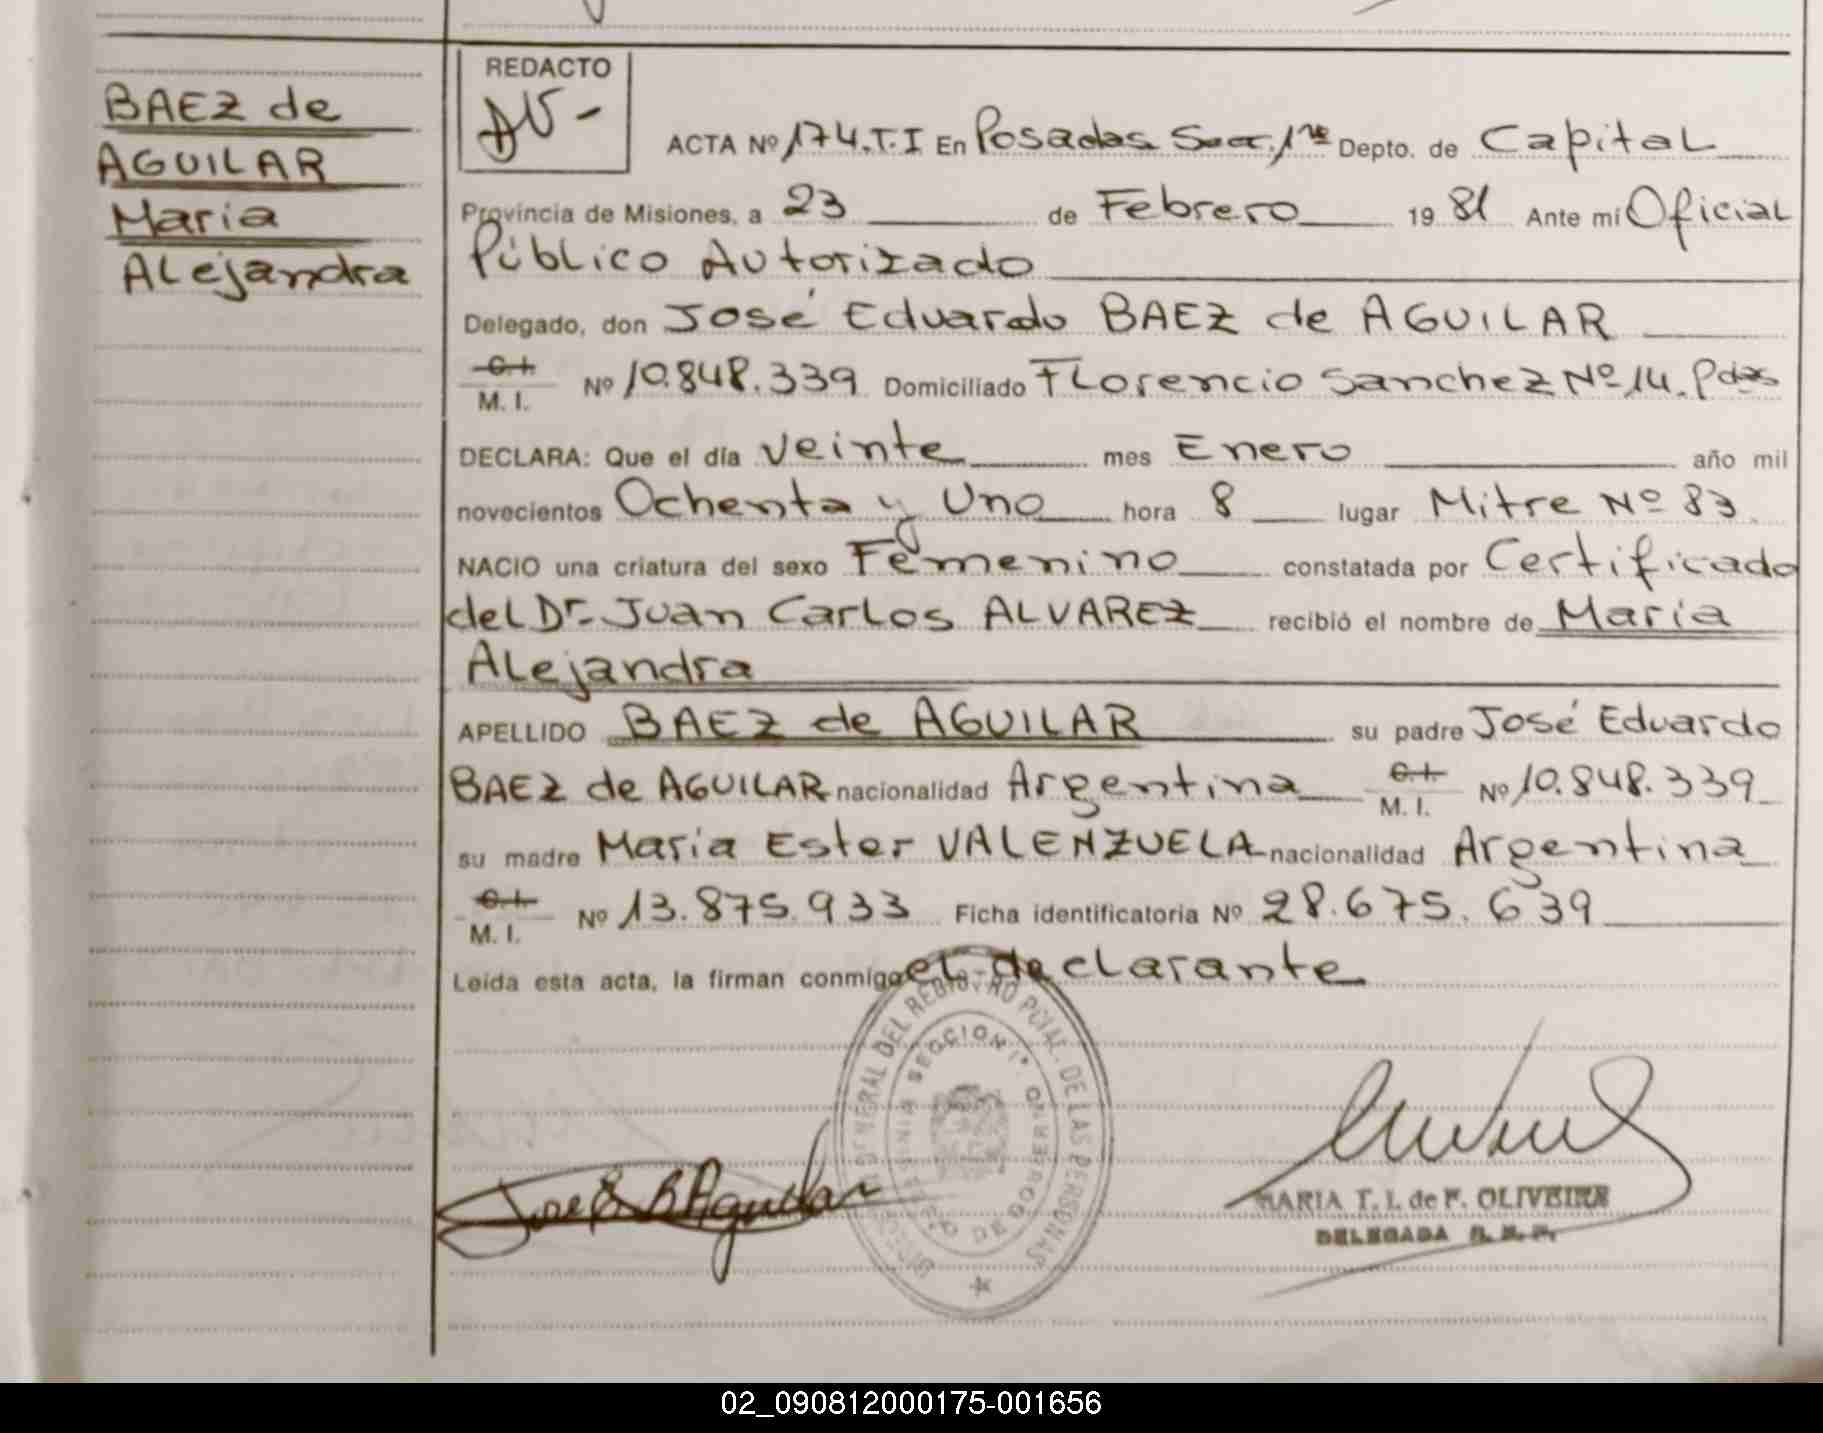 BAEZ de
AGUILAR
Maria
Alejandra
REDACTO
ACTA Nº 174.T.I En Posadas Secc. 1ra Depto. de Capital
Provincia de Misiones, a 23 de Febrero 19 81 Ante mi Oficial
Público Autorizado
Delegado, don José Eduardo BAEZ de AGUILAR
C.I.
M.I. Nº 10.848.339 Domiciliado Florencio Sanchez Nº 14. Pdas
DECLARA: Que el día veinte mes Enero año mil
novecientos Ochenta y Uno hora 8 lugar Mitre Nº 83
NACIO una criatura del sexo Femenino constatada por Certificado
del Dr. Juan Carlos ALVAREZ recibió el nombre de María
Alejandra
APELLIDO BAEZ de AGUILAR su padre José Eduardo
BAEZ de AGUILAR nacionalidad Argentina C.I.
M.I. Nº 10.848.339
su madre María Ester VALENZUELA nacionalidad Argentina
C.I.
M.I. Nº 13.875.933 Ficha identificatoria Nº 28.675.639
Leída esta acta, la firman conmigo el declarante
GENERAL DEL REGISTRO PCIAL. DE LAS PERSONAS
SECCION 1ª
DE GOBIERNO
Jose E B Aguilar
MARIA T. I. de F. OLIVEIRA
DELEGADA
02_090812000175-001656